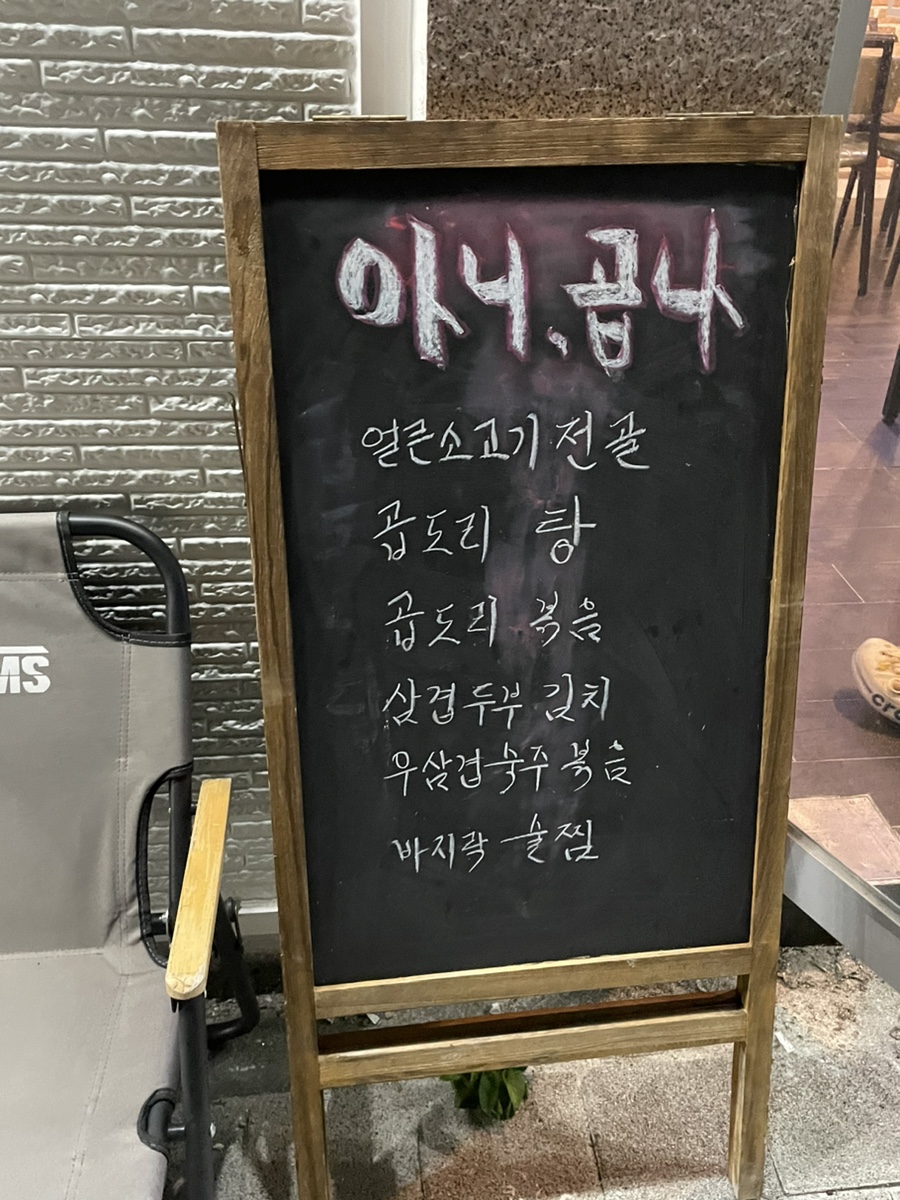 아니.곱나
얼큰소고기전골
곱도리 탕
곱도리 볶음
삼겹두부 김치
우삼겹숙주볶음
바지락 술찜
MS
cro